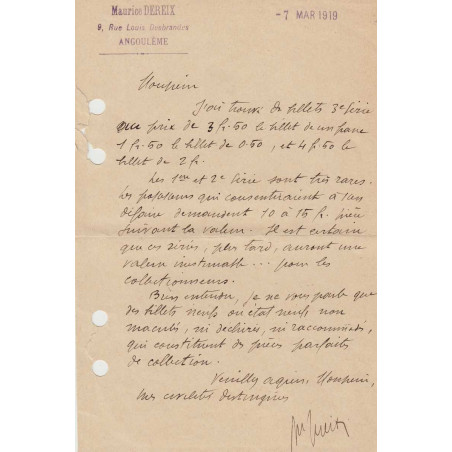 Maurice DEREIX
9, Rue Louis Desbrandes
ANGOULÊME
-7 MAR 1919
Monsieur
J'ai trouvé de billets 3e série
au prix de 3 fr. 50 le billet de un franc
1 fr. 50 le billet de 0.50, et 4 fr. 50 le
billet de 2 fr.
Les 1ère et 2e série sont très rares.
Les possesseurs qui consentiraient à s'en
défaire demandent 10 à 15 f. pièce
suivant la valeur. Il est certain
que ces séries, plus tard, auront une
valeur inestimable... pour les
collectionneurs.
Bien entendu, je ne vous parle que
des billets neufs ou état neufs non
maculés, ni déchirés, ni raccommodés,
qui constituent des pièces parfaites
de collection.
Veuillez agréer, Monsieur,
mes civilités distinguées